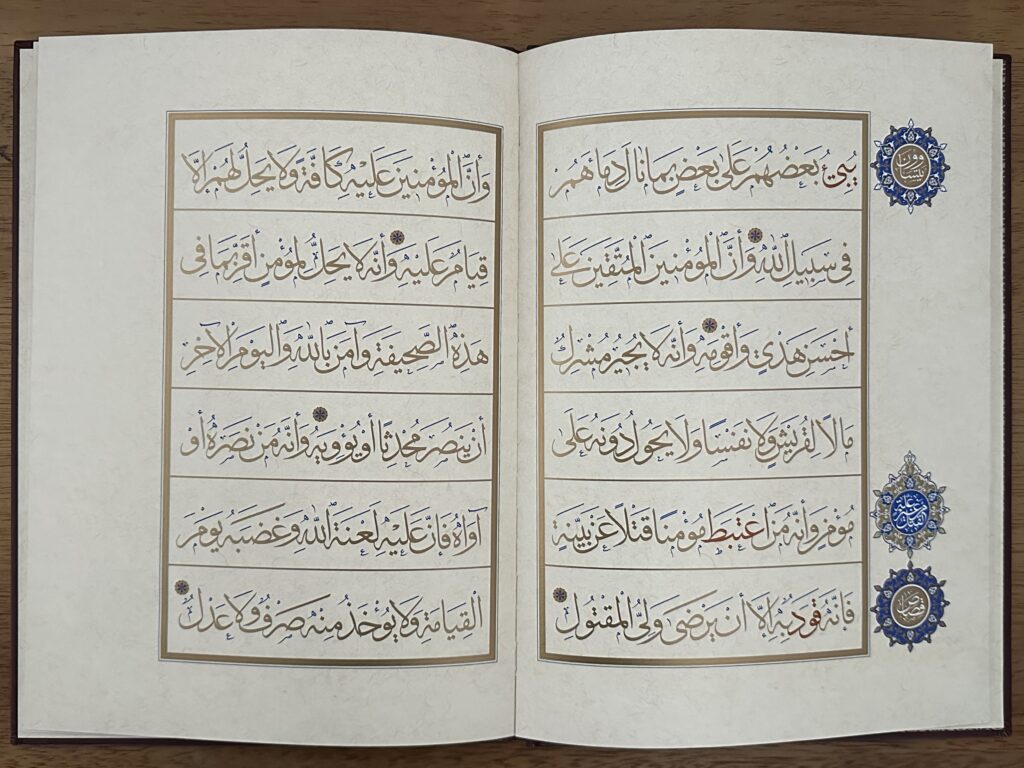 يُبِيءُ بَعْضُهُمْ عَلَى بَعْضٍ بِمَا نَالَ دِمَاءَهُمْ
يتساوون
فِي سَبِيلِ اللَّهِ وَأَنَّ الْمُؤْمِنِينَ الْمُتَّقِينَ عَلَى
أَحْسَنِ هَدْيٍ وَأَقْوَمِهِ وَأَنَّهُ لَا يُجِيرُ مُشْرِكٌ
مَالًا لِقُرَيْشٍ وَلَا نَفْسًا وَلَا يَحُولُ دُونَهُ عَلَى
مُؤْمِنٍ وَأَنَّهُ مَنِ اعْتَبَطَ مُؤْمِنًا قَتْلًا عَنْ بَيِّنَةٍ
فَإِنَّهُ قَوَدٌ بِهِ إِلَّا أَنْ يَرْضَى وَلِيُّ الْمَقْتُولِ
قصاص
وَأَنَّ الْمُؤْمِنِينَ عَلَيْهِ كَافَّةً وَلَا يَحِلُّ لَهُمْ إِلَّا
قِيَامٌ عَلَيْهِ وَأَنَّهُ لَا يَحِلُّ لِمُؤْمِنٍ أَقَرَّ بِمَا فِي
هَذِهِ الصَّحِيفَةِ وَآمَنَ بِاللَّهِ وَالْيَوْمِ الْآخِرِ
أَنْ يَنْصُرَ مُحْدِثًا أَوْ يُؤْوِيهِ وَأَنَّهُ مَنْ نَصَرَهُ أَوْ
آوَاهُ فَإِنَّ عَلَيْهِ لَعْنَةَ اللَّهِ وَغَضَبَهُ يَوْمَ
الْقِيَامَةِ وَلَا يُؤْخَذُ مِنْهُ صَرْفٌ وَلَا عَدْلٌ